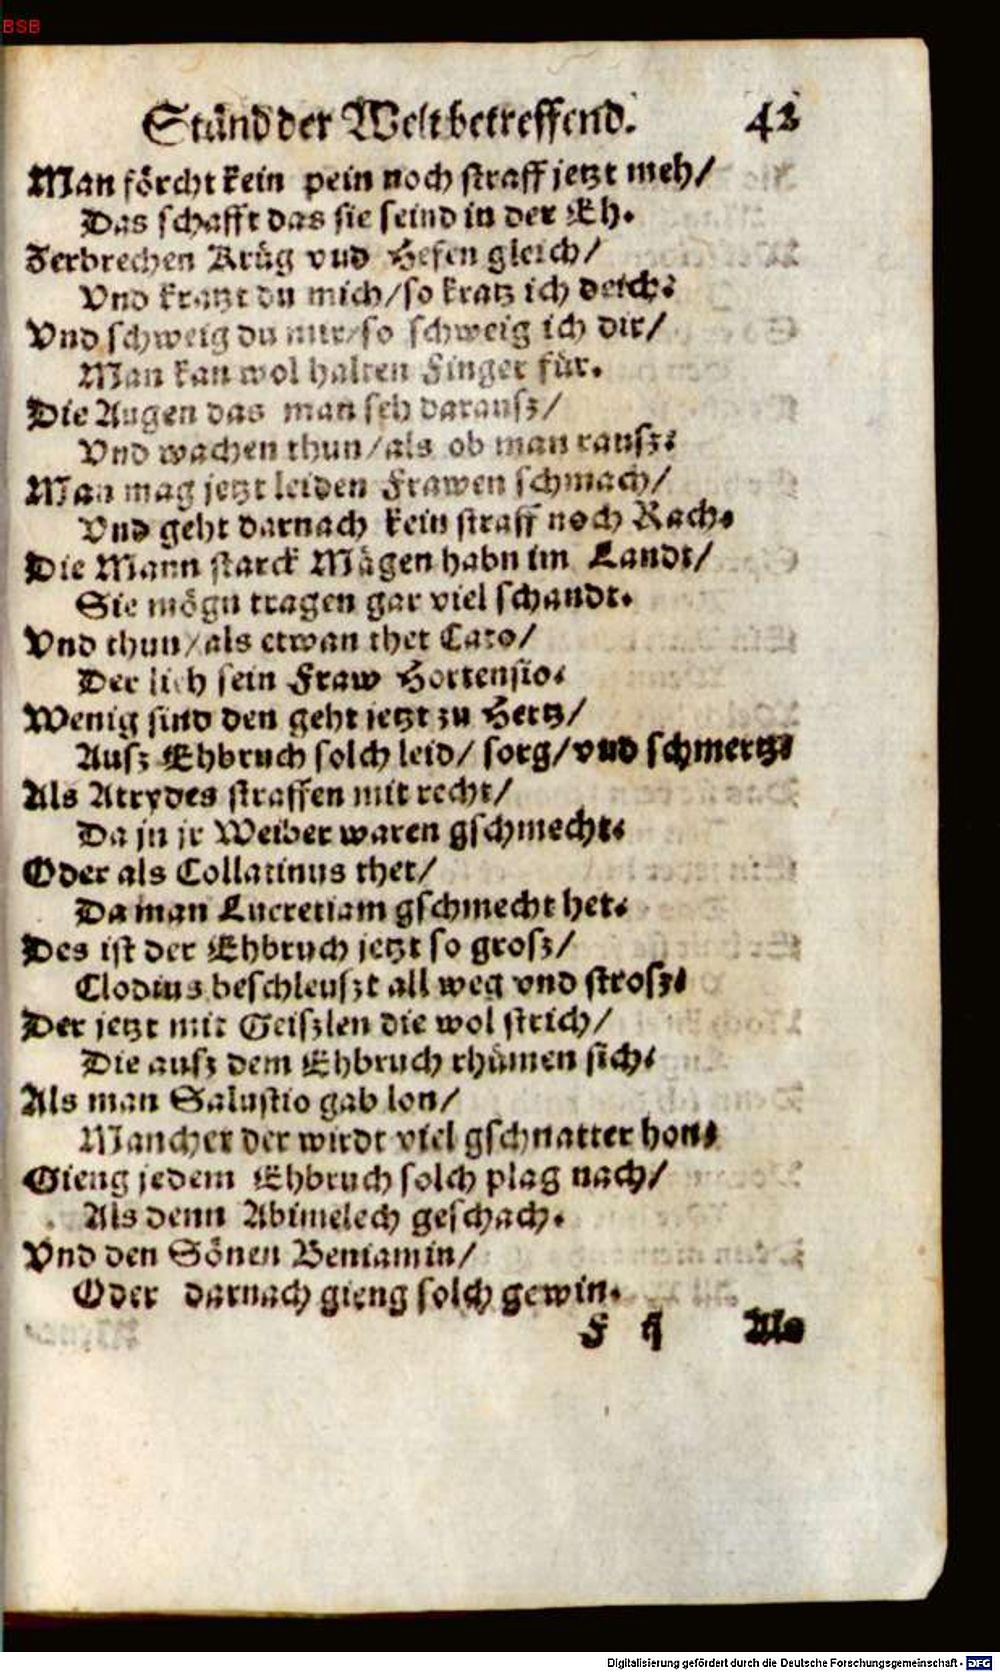 BSB
Stånd der Welt betreffend. 42
Man förcht kein pein noch straff jetzt meh/
Das schafft das sie seind in der Eh.
Zerbrechen Krüg vnd Hefen gleich/
Vnd kratzt du mich/so kratz ich deich.
Vnd schweig du mir/so schweig ich dir/
Man kan wol halten Finger für.
Die Augen das man seh darausz/
Vnd wachen thun/als ob man rausz.
Man mag jetzt leiden Frawen schmach/
Vnd geht darnach kein straff noch Rach.
Die Mann starck Mägen habn im Landt/
Sie mögn tragen gar viel schandt.
Vnd thun/als etwan thet Cato/
Der lieh sein Fraw Hortensio.
Wenig sind den geht jetzt zu Hertz/
Ausz Ehbruch solch leid/ sorg/vnd schmertz.
Als Atrydes straffen mit recht/
Da jn jr Weiber waren gschmecht.
Oder als Collatinus thet/
Da man Lucretiam gschmecht het.
Des ist der Ehbruch jetzt so grosz/
Clodius beschleuszt all weg vnd strosz.
Der jetzt mit Geiszlen die wol strich/
Die ausz dem Ehbruch rhümen sich.
Als man Salustio gab lon/
Mancher der wirdt viel gschnatter hon.
Gieng jedem Ehbruch solch plag nach/
Als denn Abimelech geschach.
Vnd den Sönen Beniamin/
Oder darnach gieng solch gewin.
F ij Als
Digitalisierung gefördert durch die Deutsche Forschungsgemeinschaft - DFG